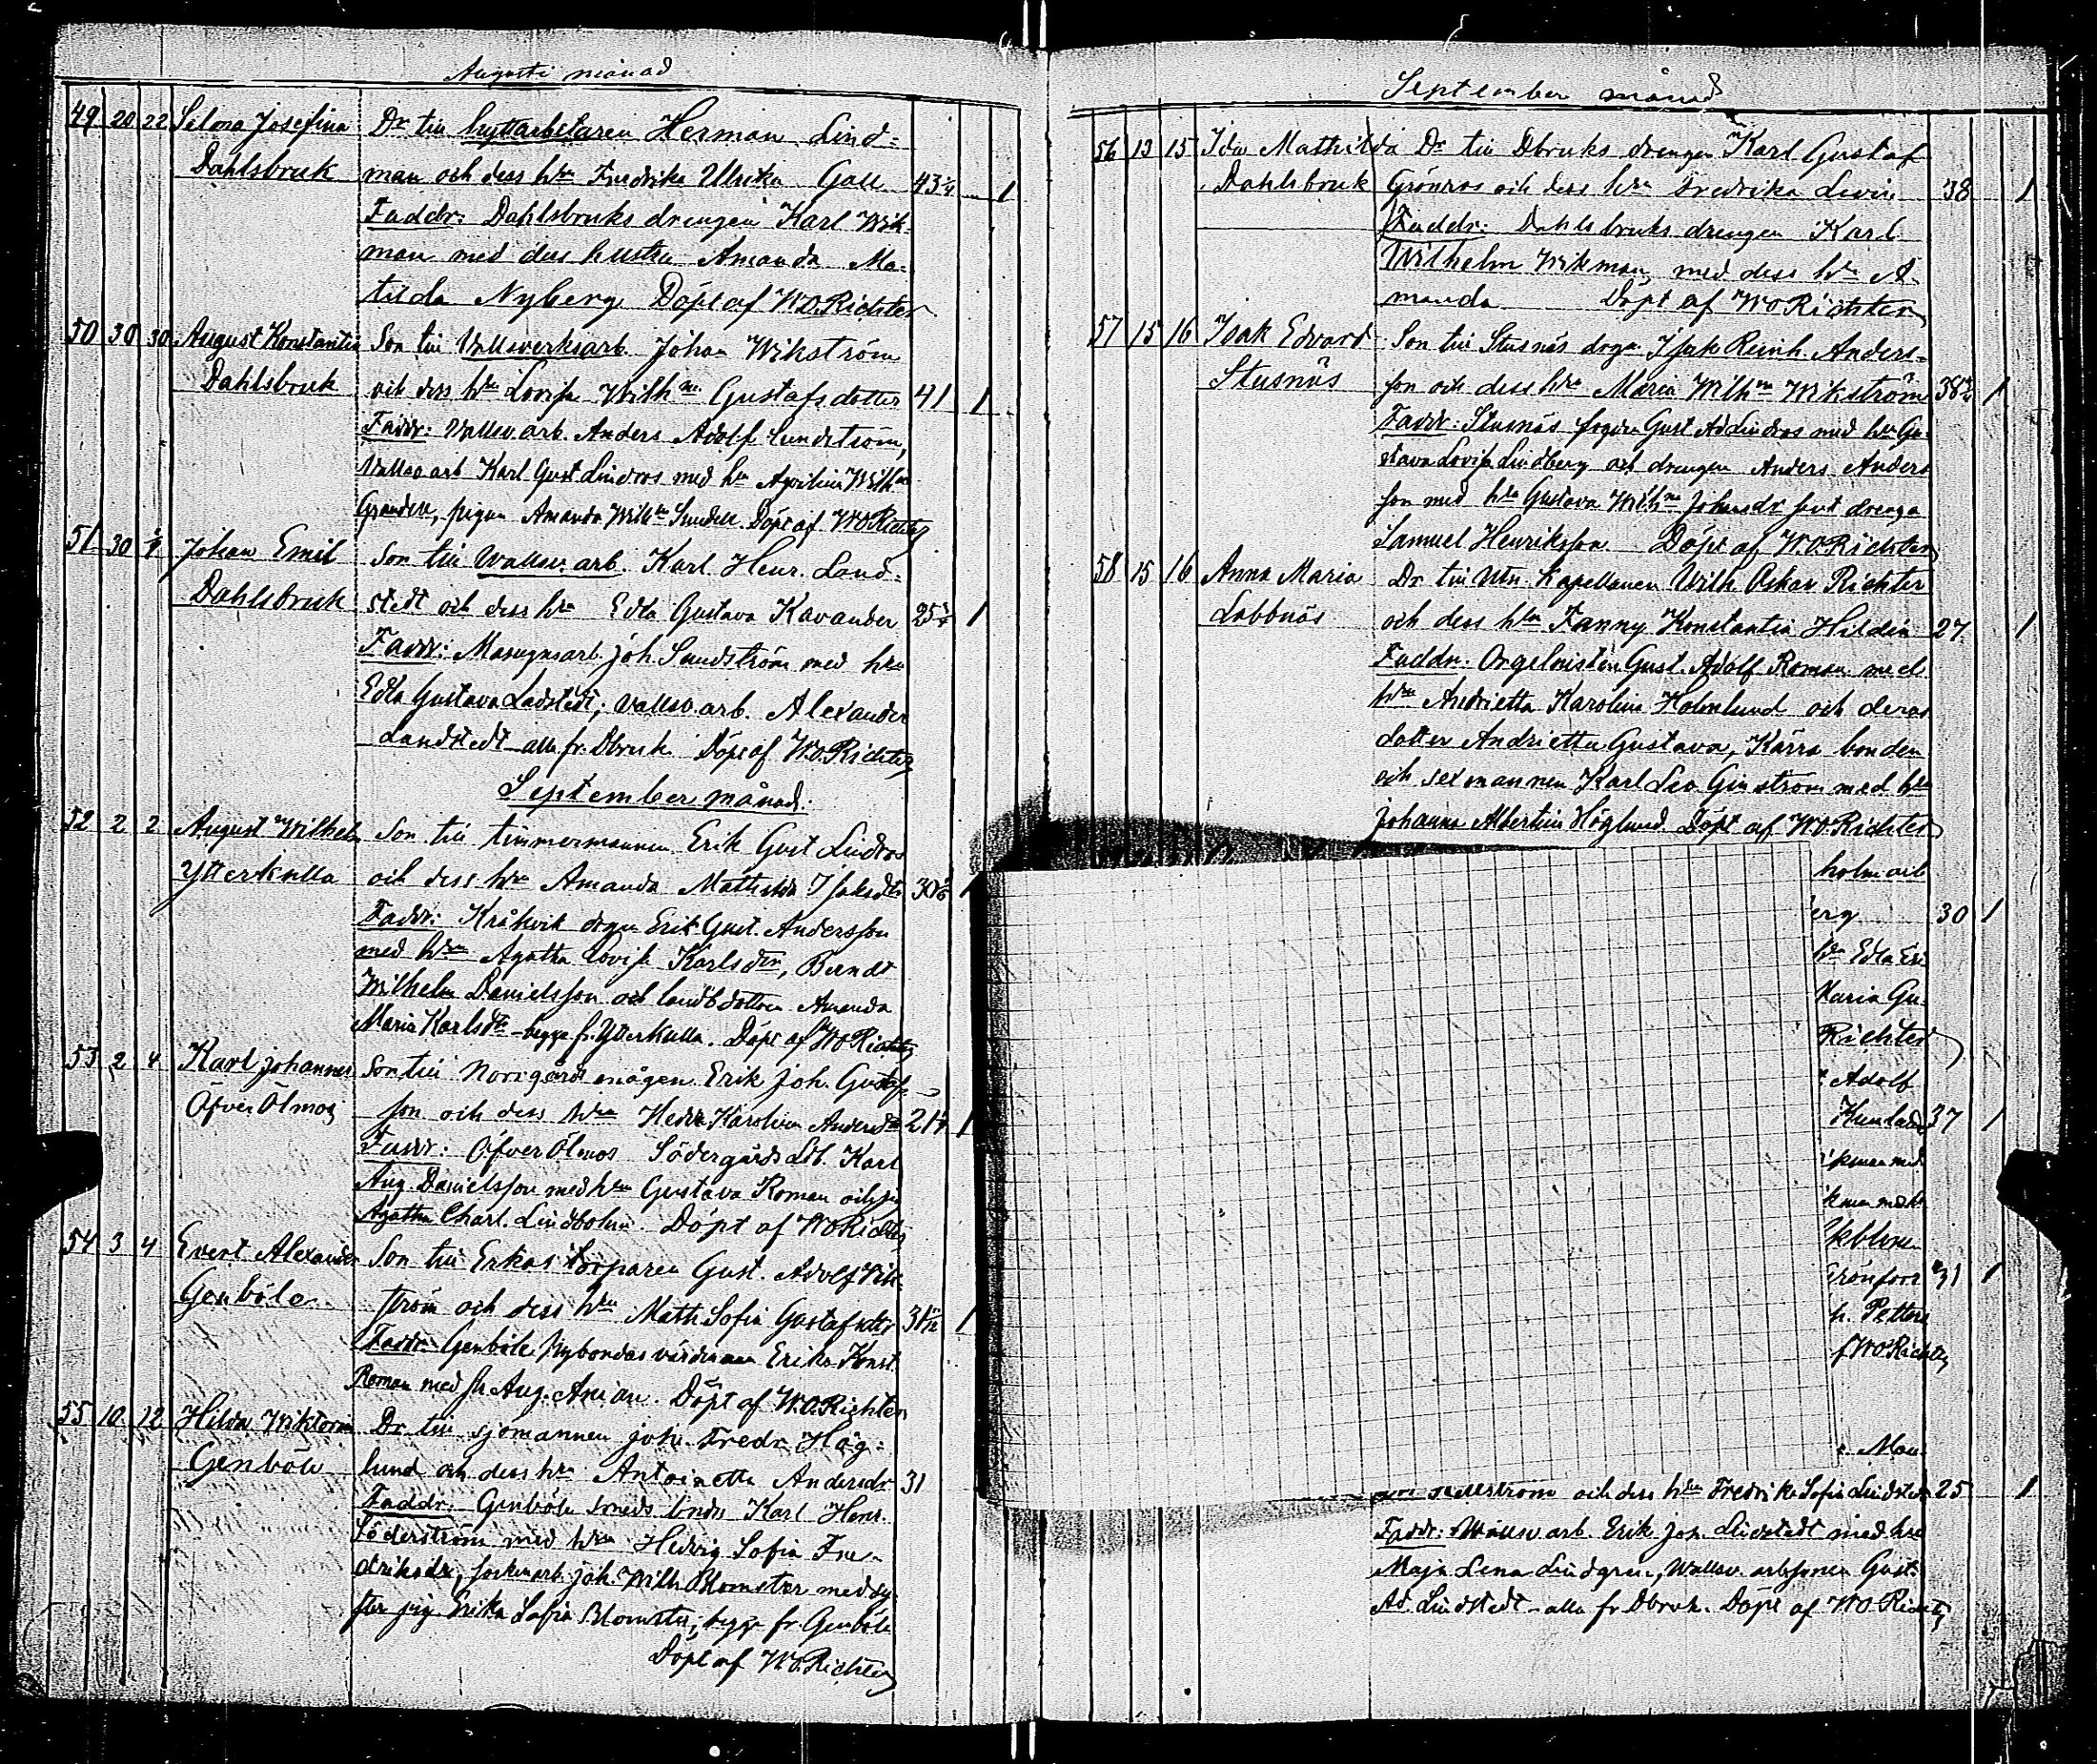 Augusti månad
49 20 22 Selma Josefina Dr till hyttarbetaren Herman Lind=
Dahlsbruk man och dess hru Fredrika Ulrika Gall 43 1
Faddr: Dahlsbruks drengen Karl Wik-
man med dess hustru Amanda Ma-
tilda Nyberg Döpt af W.O.Richter
50 30 30 August Konstantin Son till Vallsverksarb. Johan Wikström
Dahlsbruk och dess hru Lovisa Wilhna Gustafsdotter 41 1
Faddr: Vallsv. arb. Anders Adolf Lundström,
Vallsv arb Karl Gust Lindros med hru Wilhna
Grandell, pigan Amanda Wilhna Döpt af W.O.Richter
51 30 Johan Emil Son till Wallsv. arb. Karl Henr. Land=
Dahlsbruk stedt och dess hru Edla Gustava Kavander 25 1
Faddr: Masugnsarb. Joh. Sundström med hru
Edla Gustava Ladstedt, Vallsv. arb. Alexander
Landstedt alla fr. Dbruk Döpt af W.O.Richter
September månad.
52 2 2 August Wilhelm Son till timmermannen Erik Gust Lindros
Ytterkulla och dess hru Amanda Mathilda Isaksdtr 30 1
Faddr: Kråkvik drgn Erik Gust. Andersson
med hru Agatha Lovisa Karlsdtr, Berndt
Wilhelm Danielsson och landbdottern Amanda
Maria Karlsdtr begge fr. Ytterkulla. Döpt af W.O.Richter
53 2 4 Karl Johannes Son till Norrgårds mågen Erik Joh. Gustaf-
Öfver Ölmos son och dess hru Hedda Karolina Andersdtr 21 1
Faddr: Öfver Ölmos Södergårds Ldb. Karl
Aug. Danielsson med hru Gustava Roman och pig
Agatha Charl. Lindholm. Döpt af W.O.Richter
54 3 4 Evert Alexander Son till Erkas torparen Gust. Adolf Wik-
Genböle ström och dess hru Math Sofia Gustafsdtr 31 1
Faddr: Genböle Nybondas Eriks Konst
Roman med Aug. Döpt af W.O.Richter
55 10 12 Hilda Wiktoria Dr till sjömannen Joh. Fredr. Hög=
Genböle lund och dess hru Antoinetta Andersdr 31
Faddr: Genböle smeds bnds Karl Henr.
Söderström med hru Hedvig Sofia Fre-
driksdr, sockenarb. Joh. Wilh Blomster med sy-
ster pig. Erika Sofia Blomster, begge fr. Genböle
Döpt af W.O.Richter
September månad
56 13 15 Ida Mathilda Dr till Dbruks drengen Karl Gustaf
Dahlsbruk Grönros och dess hru Fredrika Levin 38 1
Faddr: Dahlsbruks drengen Karl
Wilhelm Wikman, med dess hru A-
manda Döpt af W O Richter
57 15 16 Isak Edvard Son till Stusnäs drgn Isak Reinh. Anders-
Stusnäs son och dess hru Maria Wilhna Wikström 38 1
Faddr: Stusnäs Gust Ad Lindros med hru Gu-
stava Lovisa Lindberg och drengen Anders Anders
son med hru Gustava Wilhna Johansdr samt drengn
Samuel Henriksson Döpt af W.O.Richter
58 15 16 Anna Maria Dr till Kapellanen Wilh. Oskar Richter
Labbnäs och dess hru Fanny Konstantia Hildén 27 1
Faddr. Orgelnisten Gust. Adolf Roman med
hru Andrietta Karolina Holmlund och deras
dotter Andrietta Gustava, Kärra bonden
och sexmannen Karl Leo Ginström med hru
Johanna Albertina Höglund Döpt af W.O.Richter
holm och
erg 30 1
hru Edla Eri-
Maria Gu-
Richter
Adolf
37 1
med
kman med
31 1
h. Petters
f W O Richter
och dess hru Fredrika Sofia Lindstedt 25 1
Faddr: Wallsv arb. Erik Joh. Lindstedt med hru
Maja Lena Lindgren, Wallsv. arbsonen Gust.
Ad. Lindstedt alla fr Dbruk. Döpt af W O Richter